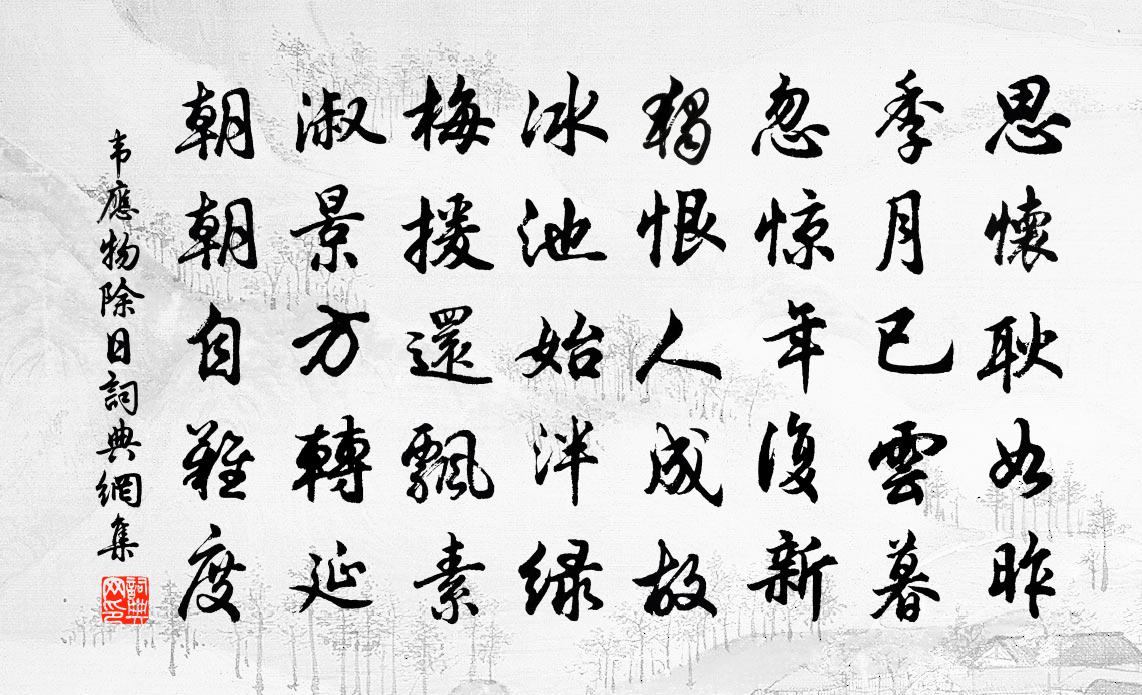 思懷耿如昨
季月已雲暮
忽惊年復新
獨恨人成故
冰池始泮绿
梅援還飄素
淑景方轉延
朝朝自難度
韦應物除日詞典網集
詞典网印